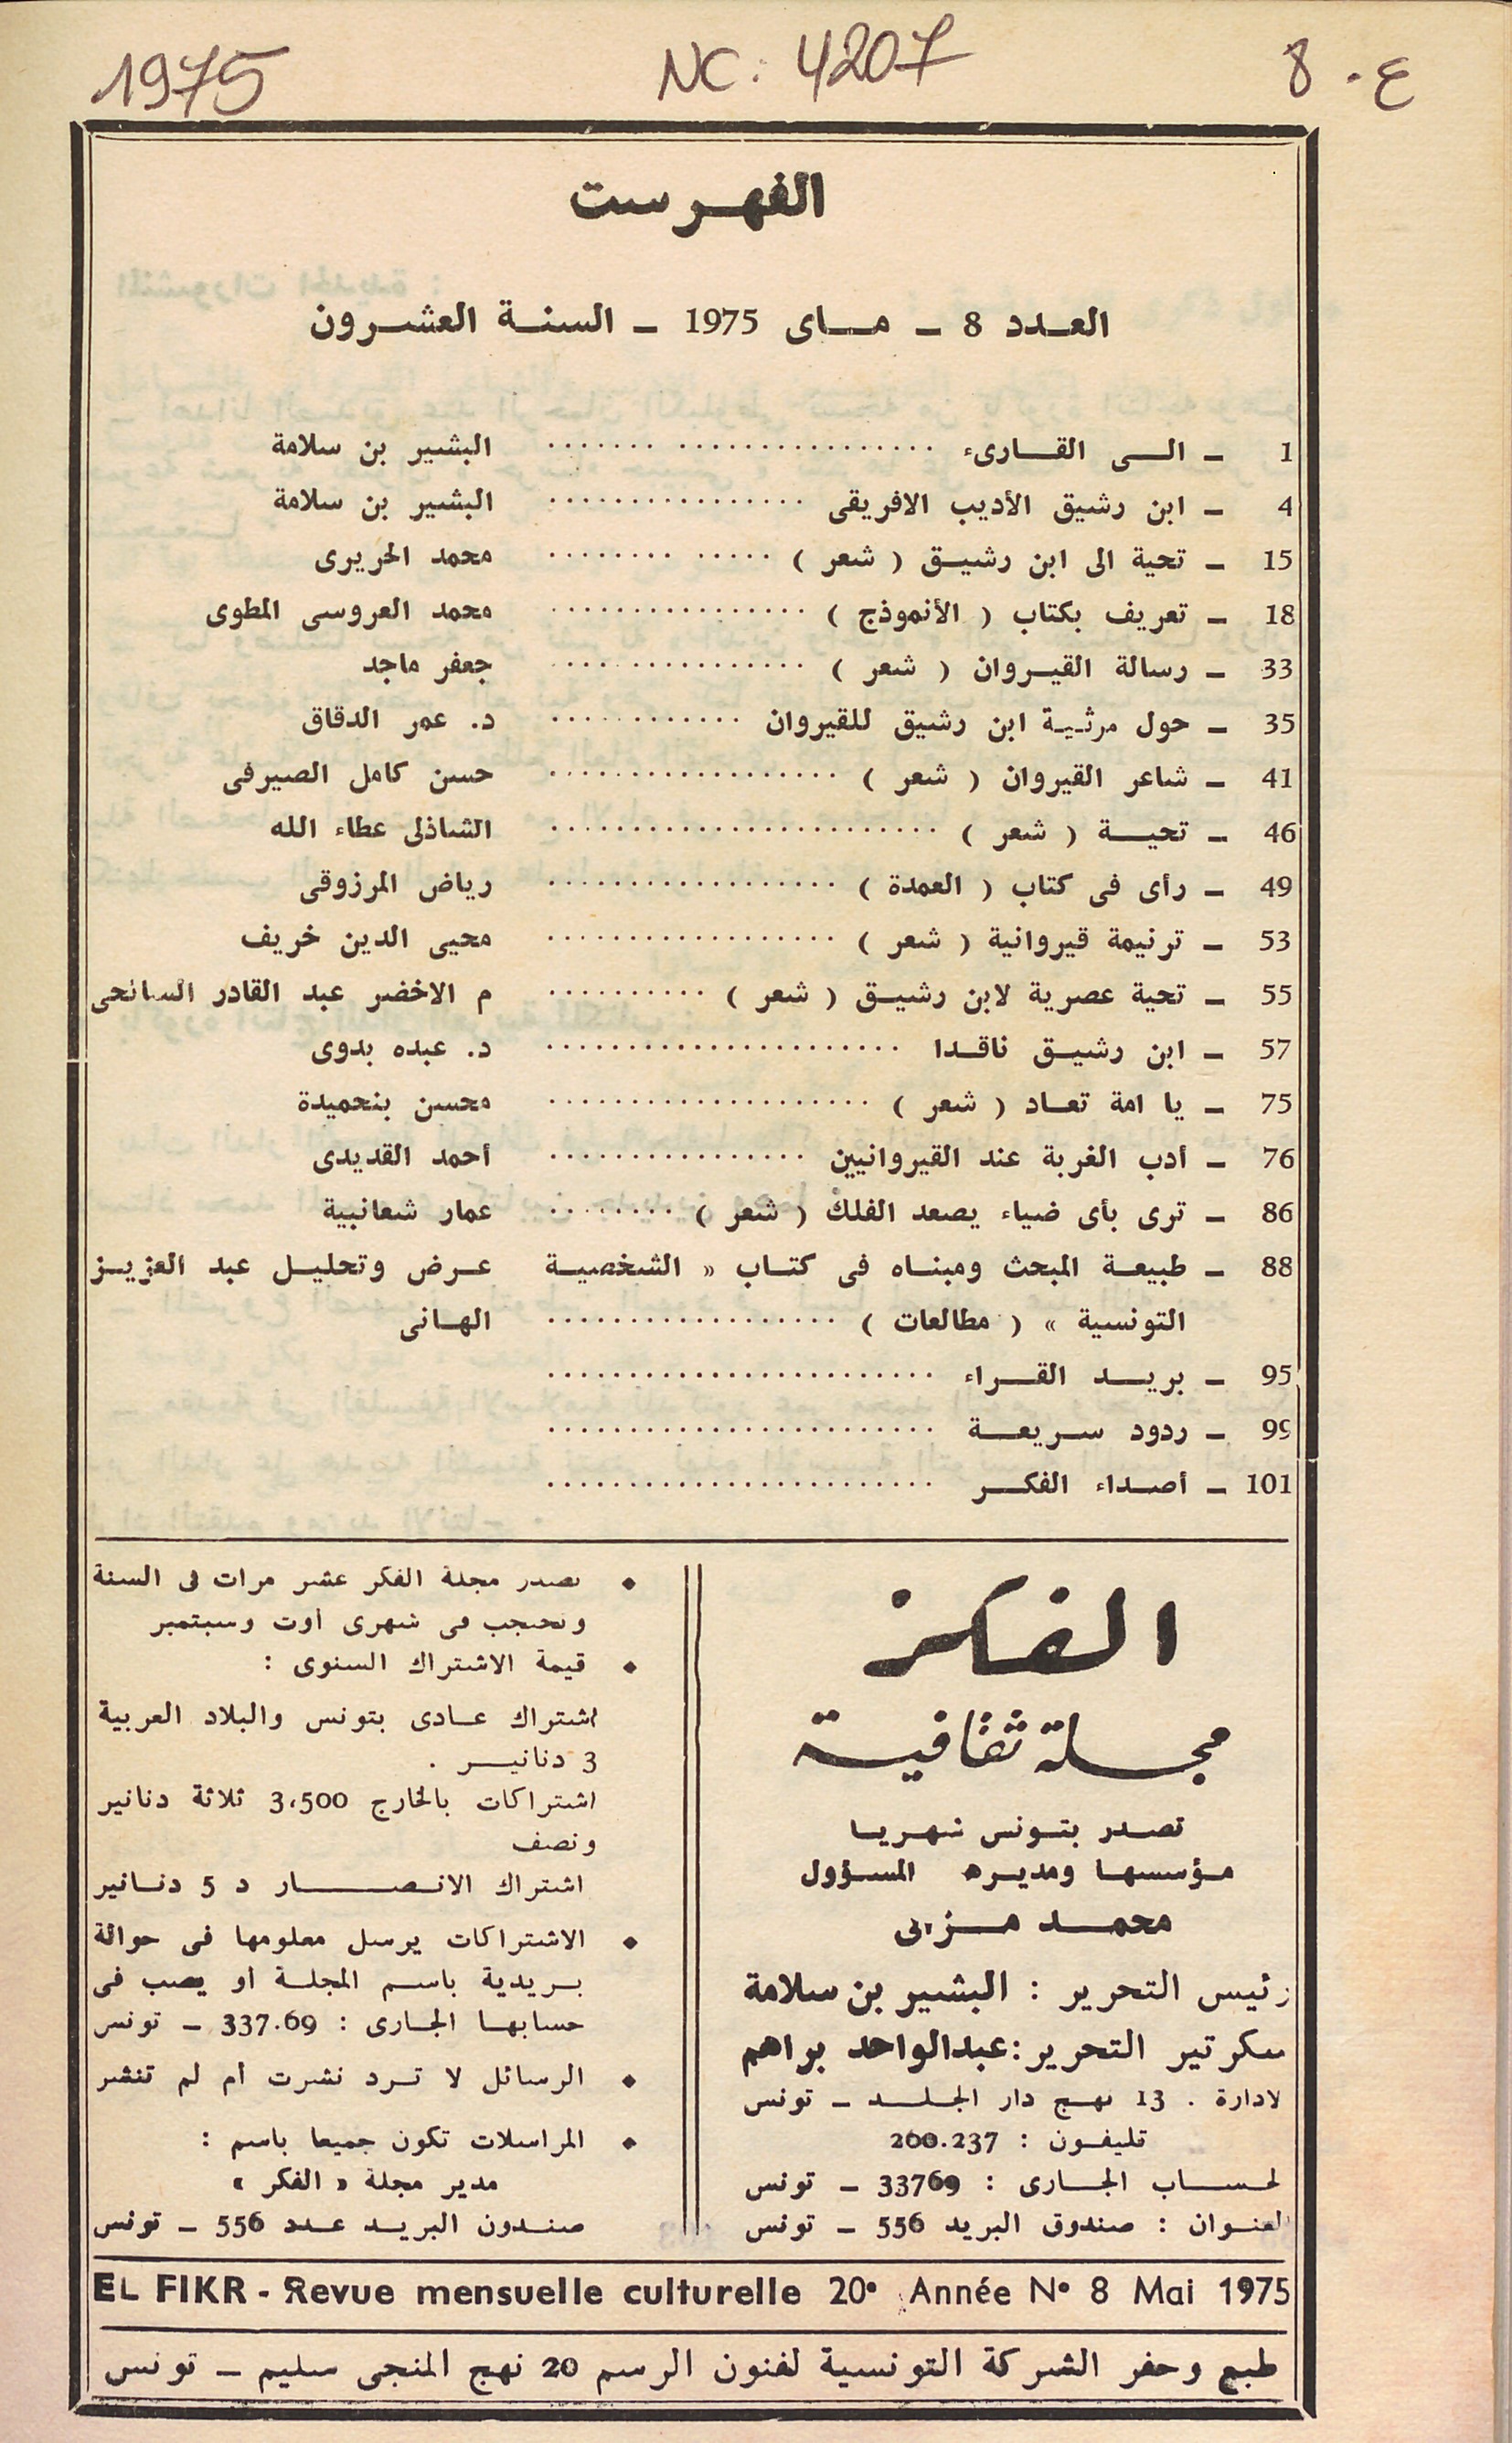 1975
NC: 4207
ع. 8
الفهرست
العدد 8 ــ ماى 1975 ــ السنة العشرون
1 ــ الى القارىء ........................ البشير بن سلامة
4 ــ ابن رشيق الأديب الافريقى ................ البشير بن سلامة
15 ــ تحية الى ابن رشيق ( شعر ) ............. محمد الحريرى
18 ــ تعريف بكتاب ( الأنموذج ) ................ محمد العروسى المطوى
33 ــ رسالة القيروان ( شعر ) ................ جعفر ماجد
35 ــ حول مرثية ابن رشيق للقيروان ............ د. عمر الدقاق
41 ــ شاعر القيروان ( شعر ) .................. حسن كامل الصيرفى
46 ــ تحية ( شعر ) ........................ الشاذلى عطاء الله
49 ــ رأى فى كتاب ( العمدة ) .................. رياض المرزوقى
53 ــ ترنيمة قيروانية ( شعر ) .................. محيى الدين خريف
55 ــ تحية عصرية لابن رشيق ( شعر ) .......... م الاخضر عبد القادر السائحى
57 ــ ابن رشيق ناقدا ...................... د. عبده بدوى
75 ــ يا امة تعاد ( شعر ) .................... محسن بنحميدة
76 ــ أدب الغربة عند القيروانيين ................ أحمد القديدى
86 ــ ترى بأى ضياء يصعد الفلك ( شعر ) ........ عمار شعانبية
88 ــ طبيعة المبحث ومبناه فى كتاب « الشخصية عرض وتحليل عبد العزيز
التونسية » ( مطالعات ) .................. الهانى
95 ــ بريد القراء ........................
99 ــ ردود سريعة ........................
101 ــ أصداء الفكر ........................
الفكر
مجلة ثقافية
تصدر بتونس شهريا
مؤسسها ومديره المسؤول
محمد مزالى
رئيس التحرير : البشير بن سلامة
سكرتير التحرير : عبدالواحد براهم
لادارة . 13 نهج دار الجلد ــ تونس
تليفون : 260.237
لحساب الجارى : 33769 ــ تونس
العنوان : صندوق البريد 556 ــ تونس
• تصدر مجلة الفكر عشر مرات فى السنة
وتحتجب فى شهرى أوت وسبتمبر
• قيمة الاشتراك السنوى :
اشتراك عادى بتونس والبلاد العربية
3 دنانير .
اشتراكات بالخارج 3،500 ثلاثة دنانير
ونصف
اشتراك الانصار د 5 دنانير
• الاشتراكات يرسل معلومها فى حوالة
بريدية باسم المجلة أو يصب فى
حسابها الجارى : 337.69 ــ تونس
• الرسائل لا ترد نشرت أم لم تنشر
• المراسلات تكون جميعا باسم :
مدير مجلة « الفكر »
صندون البريد عدد 556 ــ تونس
EL FIKR - Revue mensuelle culturelle 20° Année N° 8 Mai 1975
طبع وحفر الشركة التونسية لفنون الرسم 20 نهج المنجى سليم ــ تونس